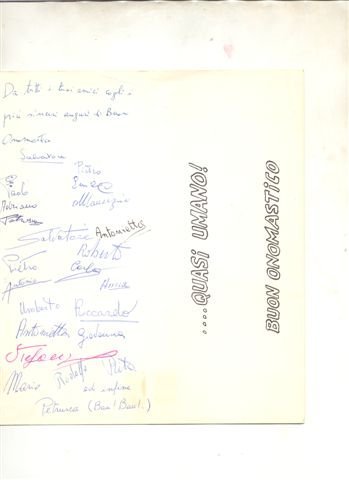 Da tutti i tuoi amici cogli i
più sinceri auguri di Buon
Onomastico
Salvatore
Pietro
Paolo
Maurizio
Adriano
Salvatore Antonietta
Roberto
Pietro Carlo
Antonio Anna
Umberto Riccardo
Antonietta Giovanna
Stefano
Mario Rodolfo Rita
ed infine
Petrusca (Bau! Bau!..)
....QUASI UMANO!
BUON ONOMASTICO